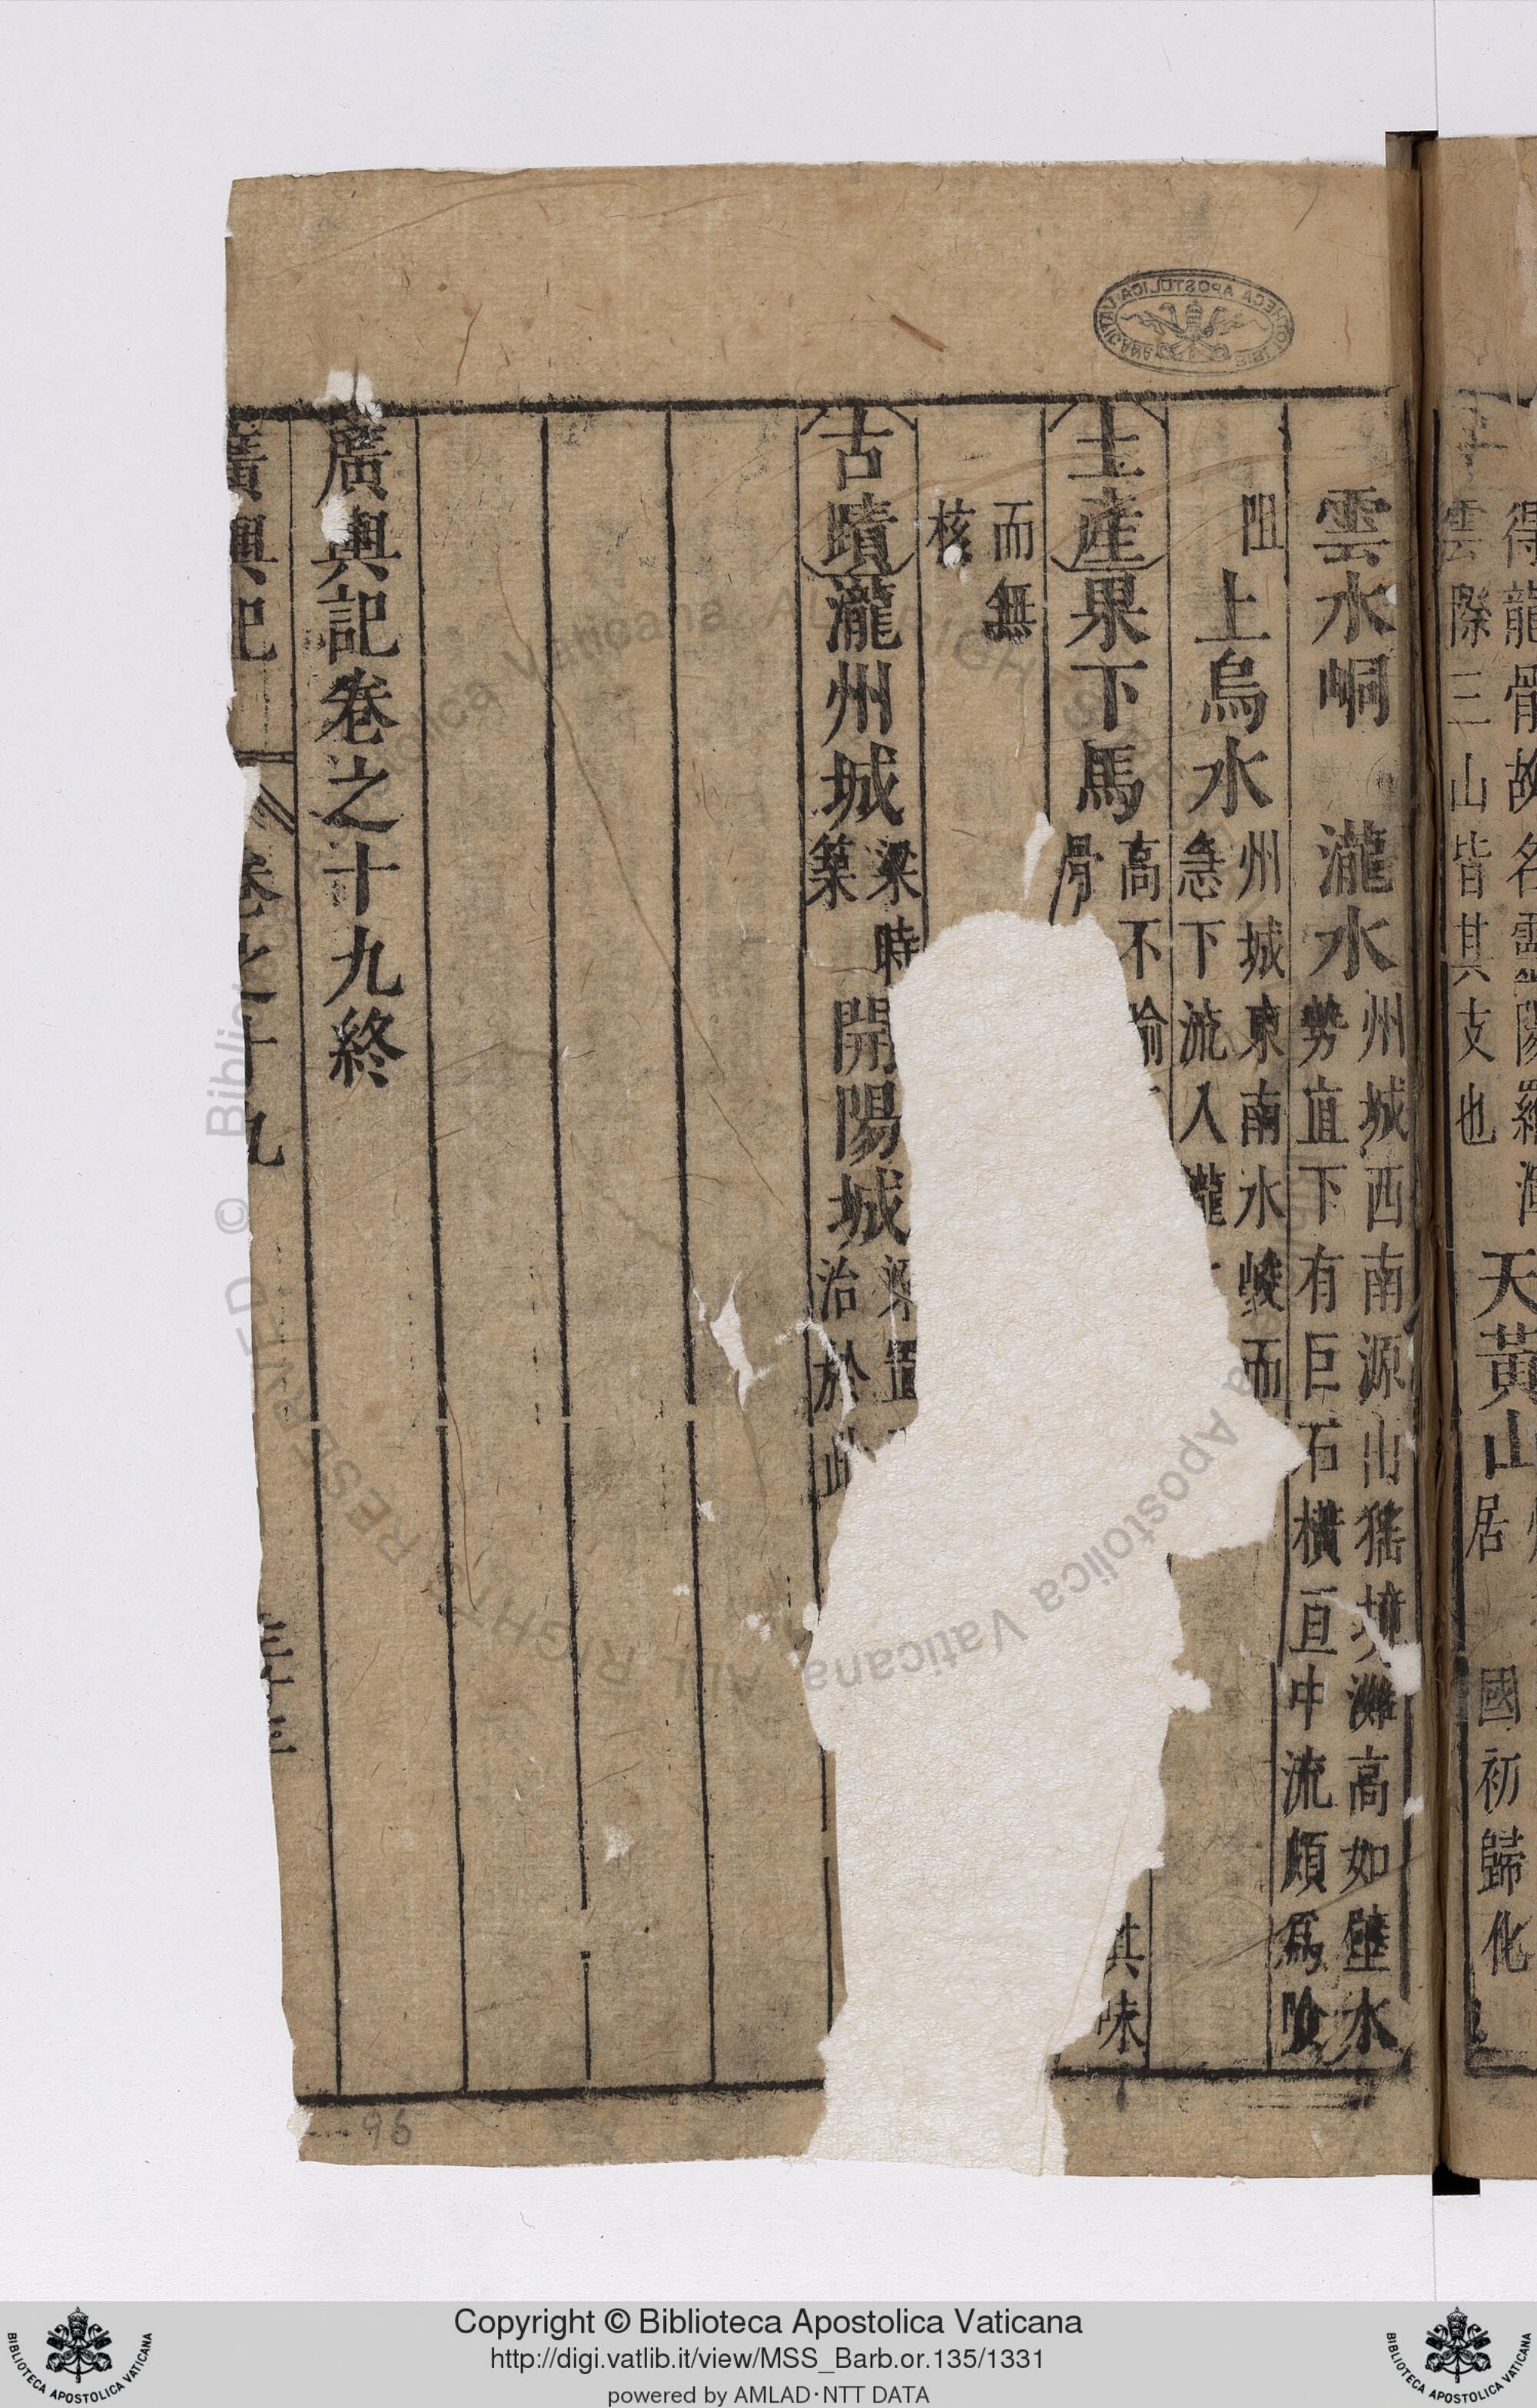 雲水峒 瀧水州城西南源出猺境灘高如壁水
勢直下有巨石橫亘中流頗爲險
阻 上烏水州城東南水峻而
急下流入瀧
土產果下馬高不踰
骨
其味
而無
核
古蹟瀧州城梁時
築 開陽城梁置
治於此
廣輿記卷之十九終
廣輿記 卷之十九 三十三
得龍骨故名靈陽羅
雲際三山皆其支也 天黃山
居 國初歸化
96
BIBLIOTHECA APOSTOLICA VATICANA
© Biblioteca Apostolica Vaticana ALL RIGHTS RESERVED
Copyright © Biblioteca Apostolica Vaticana
http://digi.vatlib.it/view/MSS_Barb.or.135/1331
powered by AMLAD·NTT DATA
BIBLIOTECA APOSTOLICA VATICANA
BIBLIOTECA APOSTOLICA VATICANA